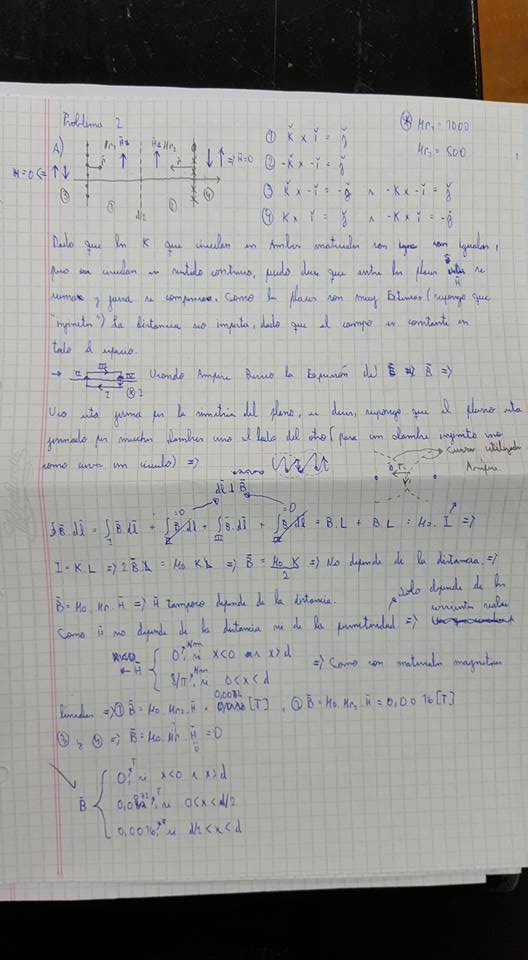 Problema 2
A)
① K x i = j
② -K x -i = j
③ K x -i = -j ∧ -K x -i = j
④ K x i = j ∧ -K x i = -j
Mr₁ = 1000
Mr₂ = 500
Dado que las K que circulan en Ambos materiales son iguales,
pero circulan en sentido contrario, puedo decir que entre las placas se
suman y fuera se compensan. Como las placas son muy Extensas (supongo que
"infinitas") La distancia no importa, dado que el campo es constante en
todo el espacio.
→ Usando Ampere Busco la Expresión del B =>
Uso esta forma por la simetría del plano, es decir, supongo que el plano esta
formado por muchos alambres uno al lado del otro (para un alambre infinito uso
como curva un circulo) =>
Curva utilizada
Ampere.
dl ⊥ B
∮B.dl = ∫B.dl + ∫B.dl + ∫B.dl + ∫B.dl = B.L + B.L = Mo. I =>
I = K.L => 2B.L = Mo. K.L => B = Mo.K/2 => No depende de la distancia. =>
B = Mo. Mr. H => H tampoco depende de la distancia.
Como H no depende de la distancia ni de la permeabilidad => Solo depende de las
corrientes reales
H { 0 si x<0 ∧ x>d
si 0<x<d => Como son materiales magnéticos
lineales => ① B = Mo. Mr₁. H = [T], ② B = Mo. Mr₂. H = 0,0076 [T]
③ y ④ => B = Mo. Mr. H = 0
B { 0 T si x<0 ∧ x>d
si 0<x<d/2
0,0076 T si d/2<x<d